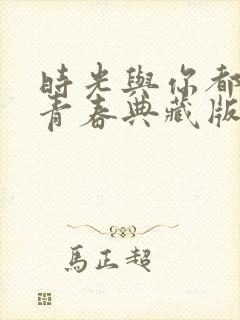 時光與你都
青春典藏版
馬正超